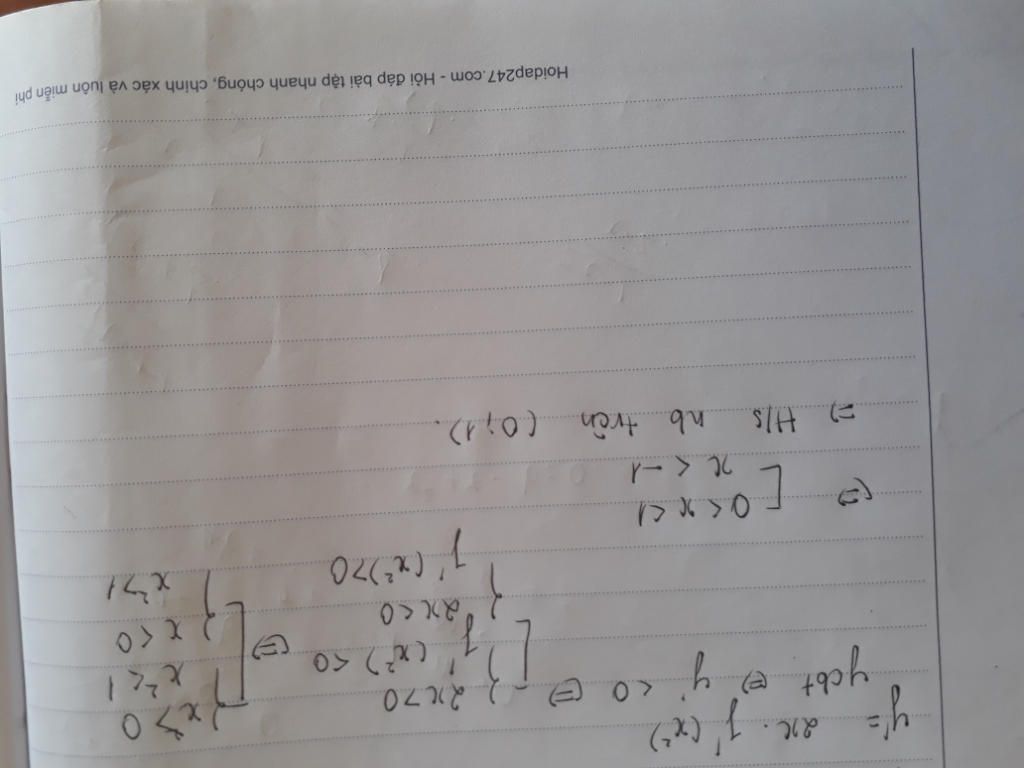 y' = 2x . f'(x²)
ycbt ⇔ y' < 0 ⇔ [ { 2x > 0 ⇔ [ { x > 0
f'(x²) < 0 x² < 1
{ 2x < 0 { x < 0
f'(x²) > 0 x² > 1
⇔ [ 0 < x < 1
x < -1
=> H/s nb trên (0; 1).
Hoidap247.com - Hỏi đáp bài tập nhanh chóng, chính xác và luôn miễn phí